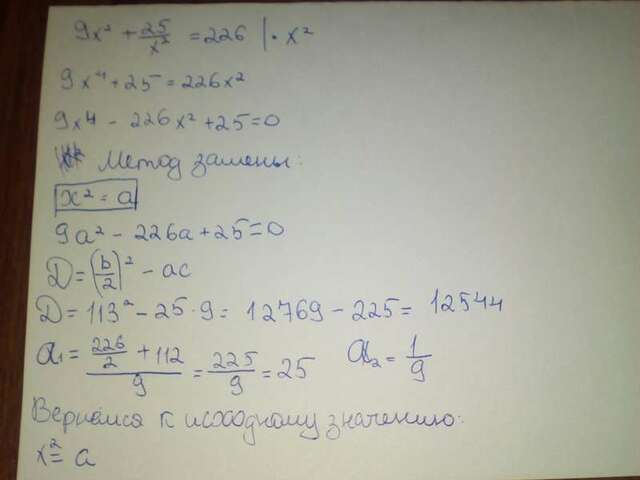 9x² + 25/x² = 226 | · x²
9x⁴ + 25 = 226x²
9x4 - 226x² + 25 = 0
Метод замены:
x² = a
9a² - 226a + 25 = 0
D = (b/2)² - ac
D = 113² - 25 · 9 = 12769 - 225 = 12544
a₁ = (226/2 + 112)/9 = 225/9 = 25 a₂ = 1/9
Вернемся к исходному значению:
x² = a